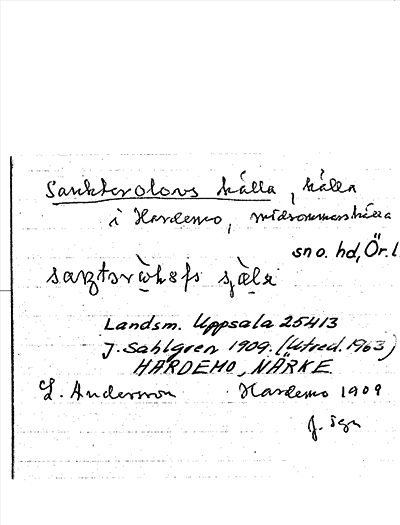 Sankterolovs källa, källa
i Hardemo, midsommarskälla
sno. hd, Ör. l
Landsm. Uppsala 25413
J. Sahlgren 1909. (Utred. 1963)
HARDEMO, NÄRKE
L. Andersson Hardemo 1909
J. Sgn